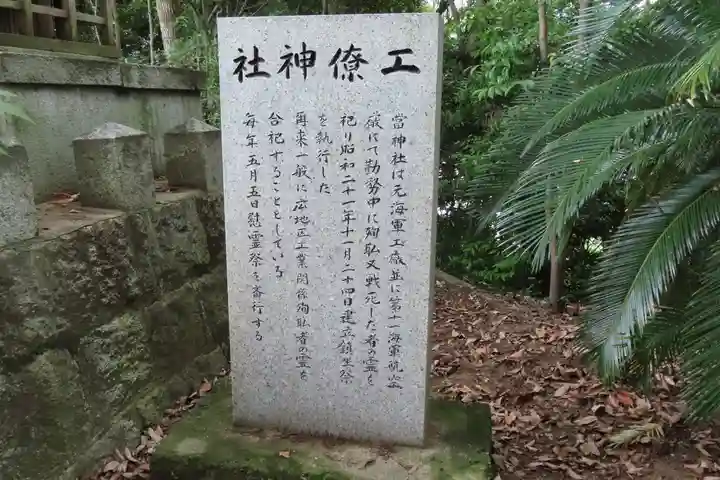 工僚神社
當神社は元海軍工廠並に第十一海軍航空
廠にて勤務中に殉職又戦死した者の霊を
祀り昭和二十一年十一月二十四日建立鎮座祭
を執行した
再来一般に広地区工業関係殉職者の霊を
合祀することとしている
毎年五月五日慰霊祭を斎行する